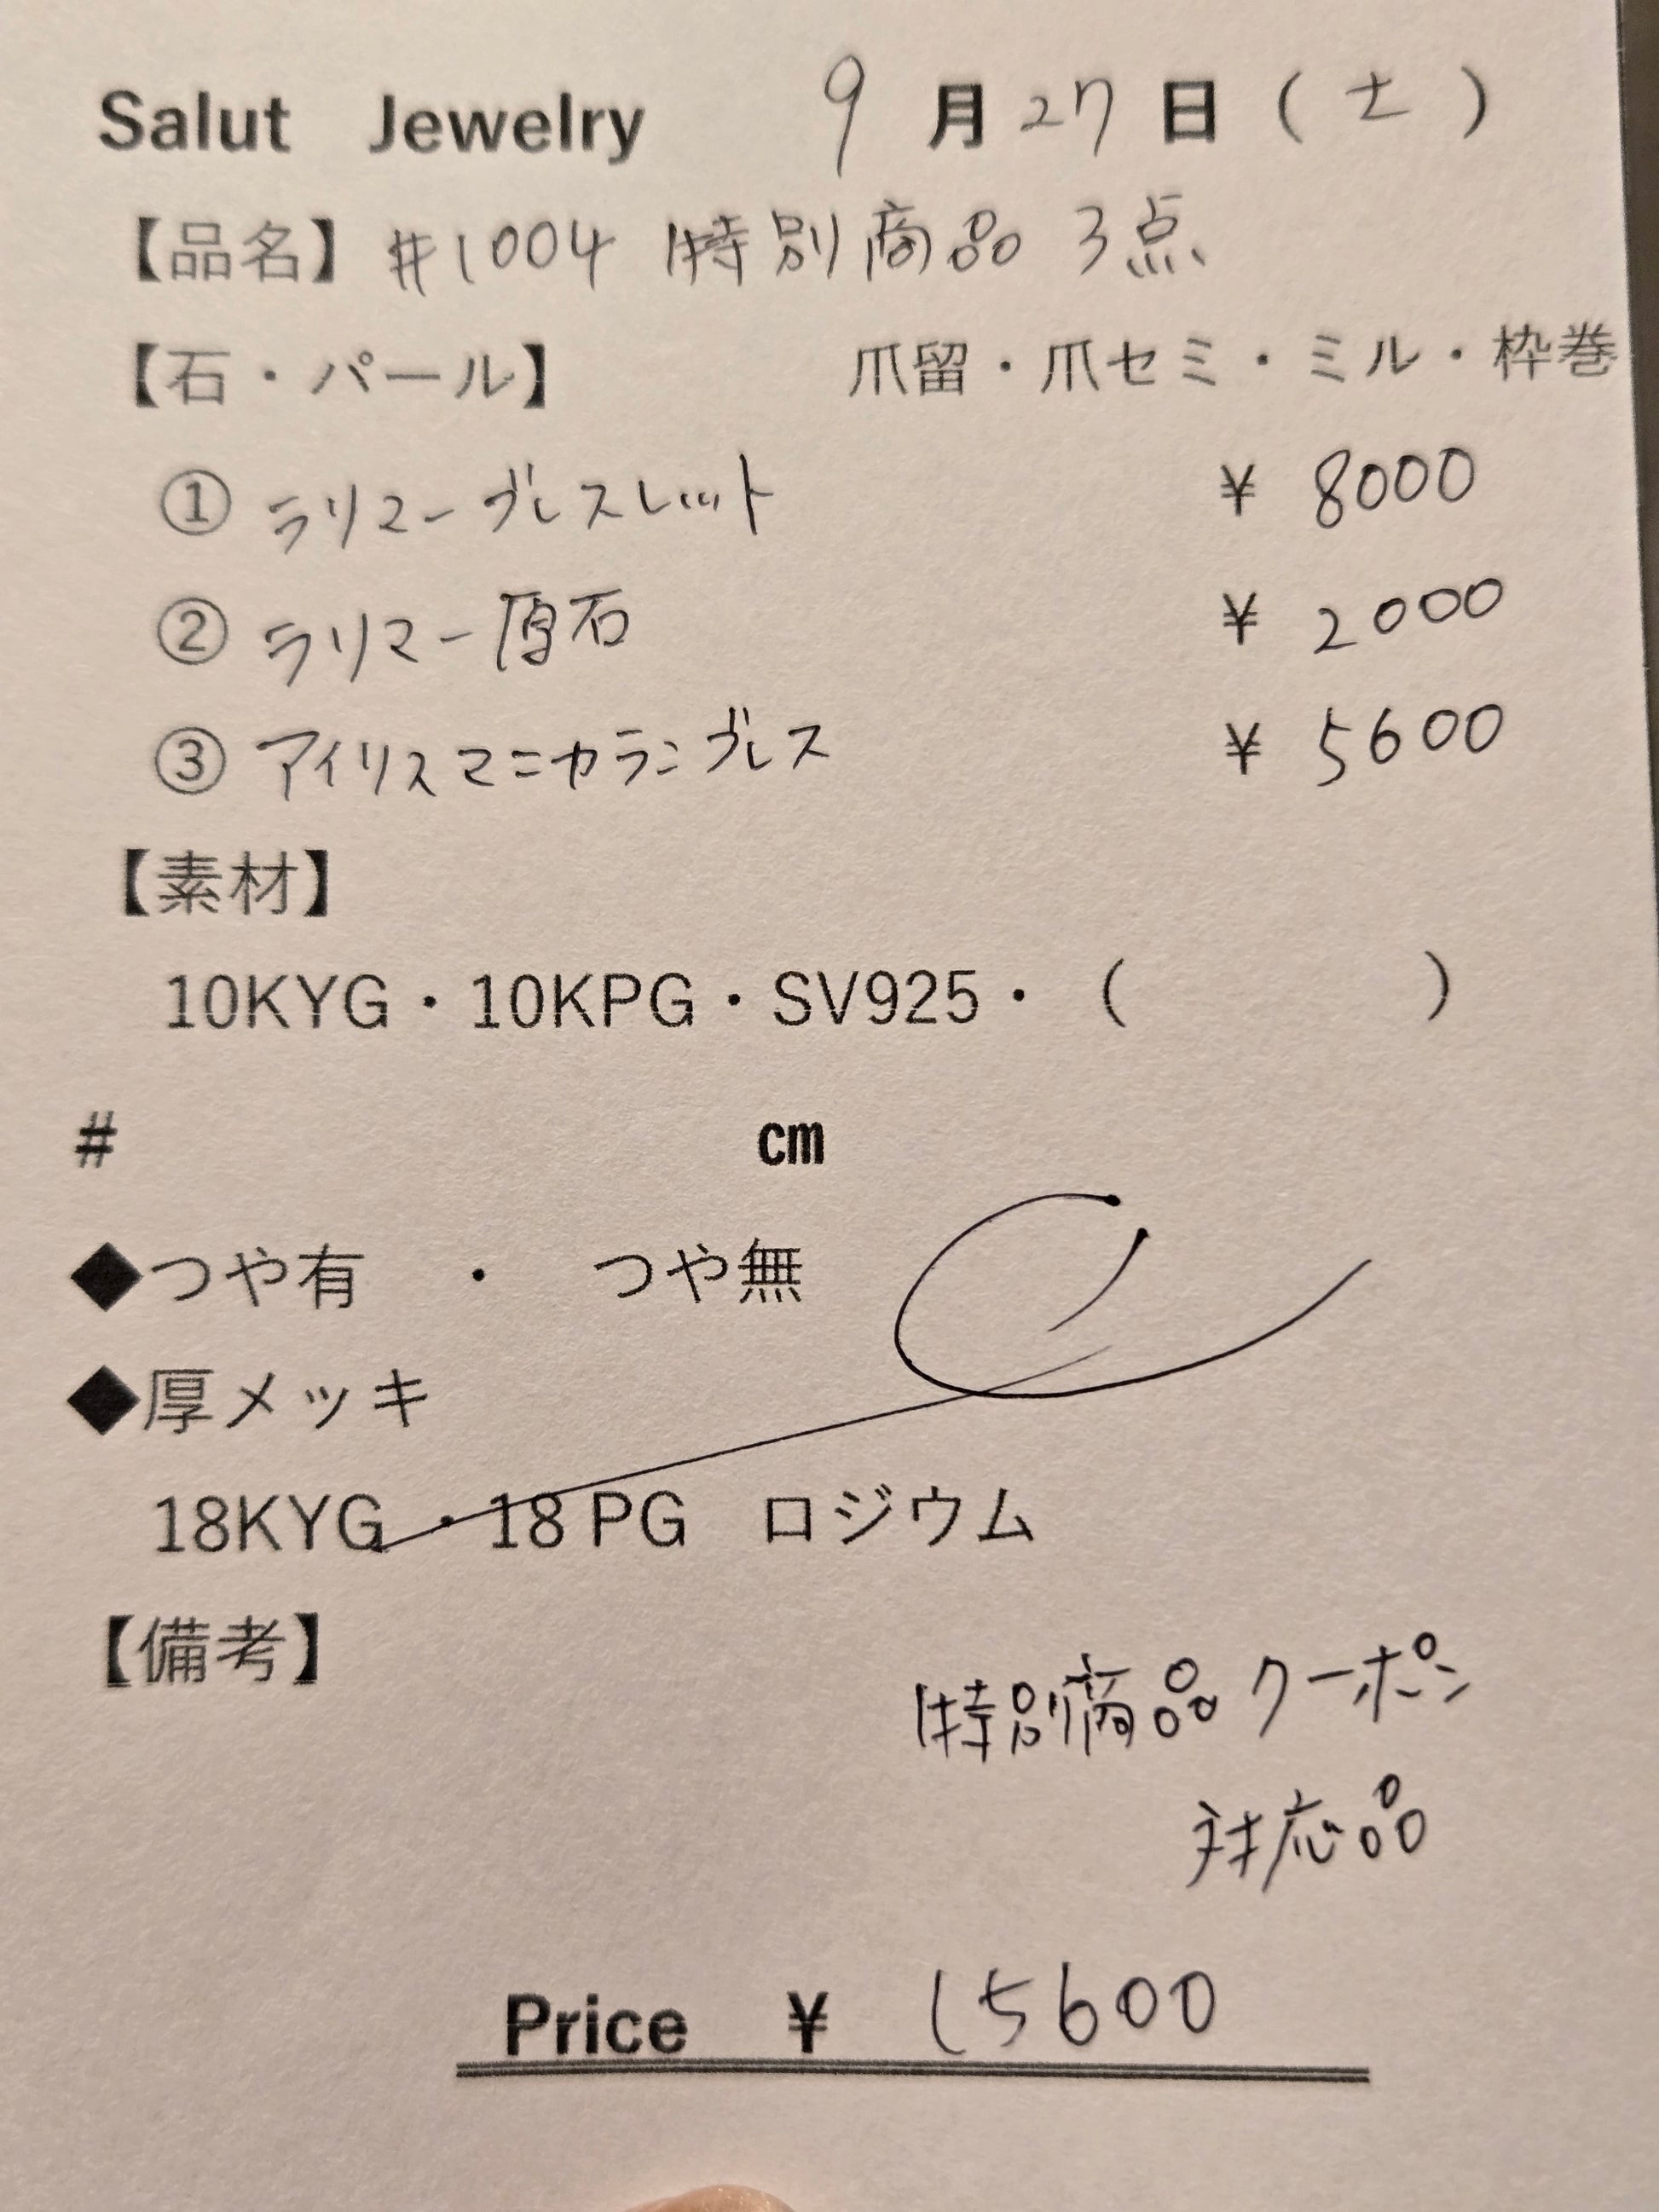 Salut Jewelry 9 月 27 日 ( 土 )
【品名】 #1004 特別商品 3点
【石・パール】 爪留・爪セミ・ミル・枠巻
① ラリマーブレスレット ¥ 8000
② ラリマー原石 ¥ 2000
③ アイリスマニカランブレス ¥ 5600
【素材】
10KYG・10KPG・SV925・( )
# cm
◆つや有 ・ つや無
◆厚メッキ
18KYG ・18 PG ロジウム
【備考】
特別商品クーポン
対応品
Price ¥ 15600